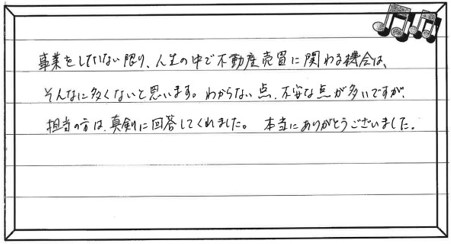 事業をしていない限り、人生の中で不動産売買に関わる機会は、
そんなに多くないと思います。わからない点、不安な点が多いですが、
担当の方は、真剣に回答してくれました。 本当にありがとうございました。